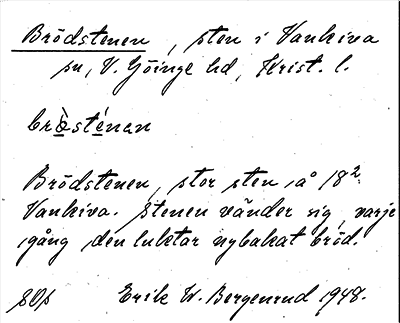 Brödstenen, sten i Vankiva
sn, V. Göinge hd, Krist. l.
brø̀sténan
Brödstenen, stor sten å 18²
Vankiva. Stenen vänder sig varje
gång den luktar nybakat bröd.
Erik W. Bergenrud 1948.